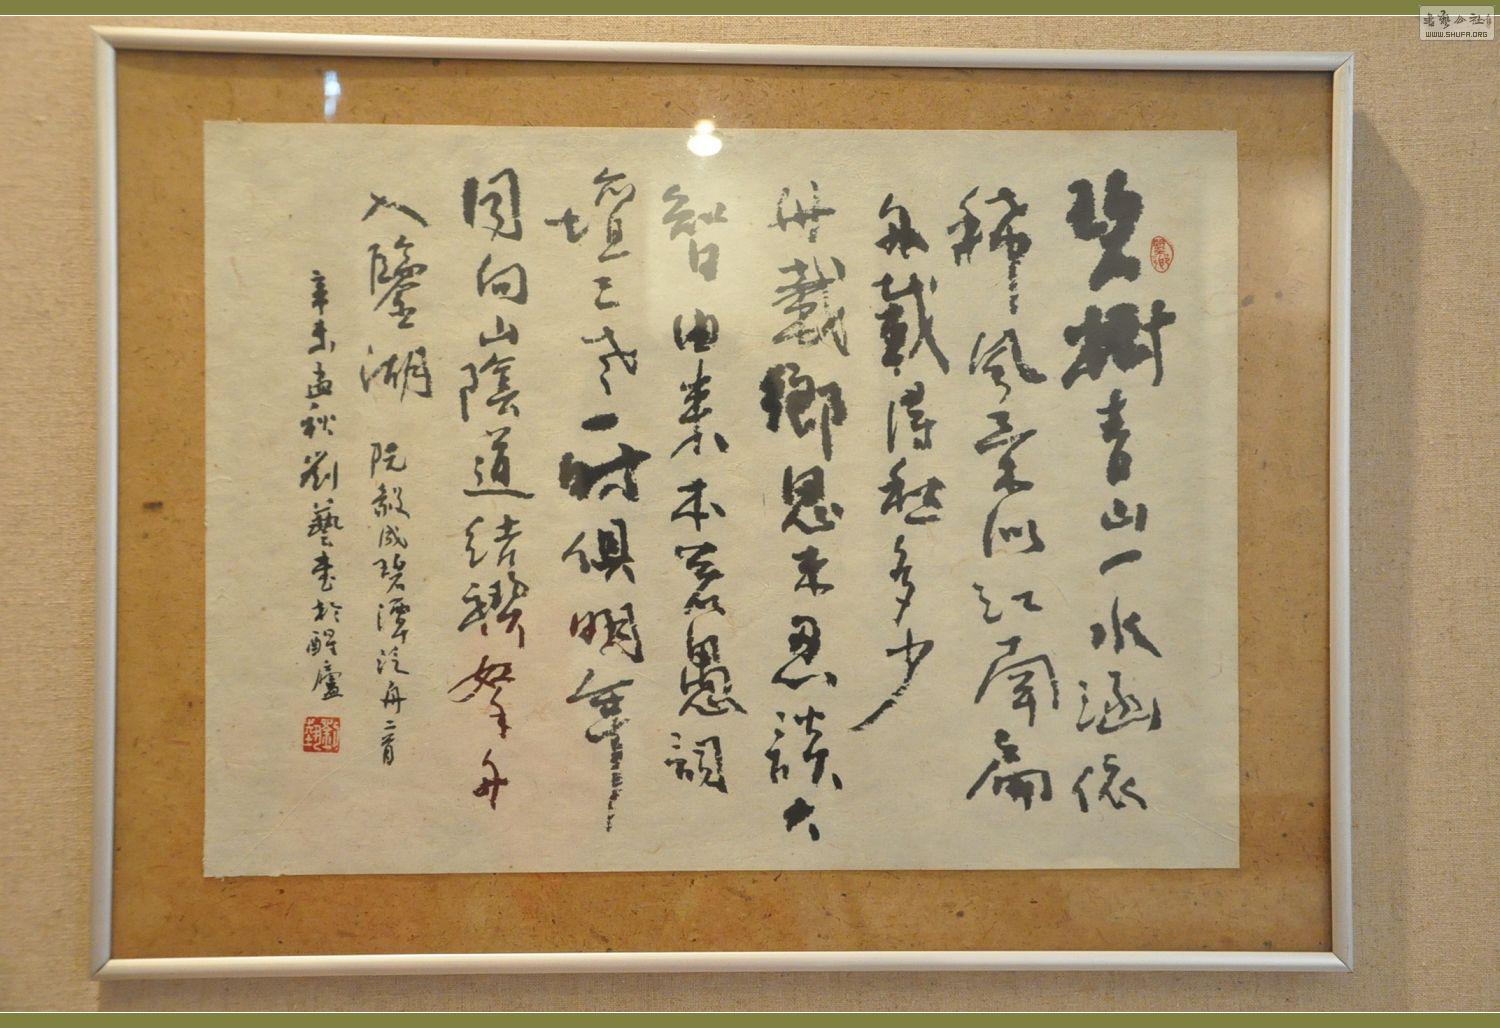 碧樹青山一水涵依
稀風景似江南扁
舟載得愁多少
舟載鄉思未忍談大
智由來本若愚詞
壇三老一時俱明年
同向山陰道結襖擬舟
入鑒湖 阮毅成碧潭泛舟二首
辛未孟秋劉藝書於醒廬
書藝公社
WWW.SHUFA.ORG